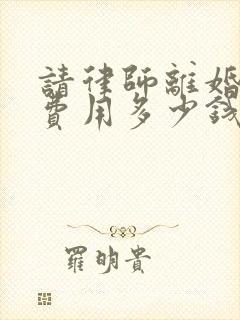 請律師離婚
費用多少錢
羅明貴